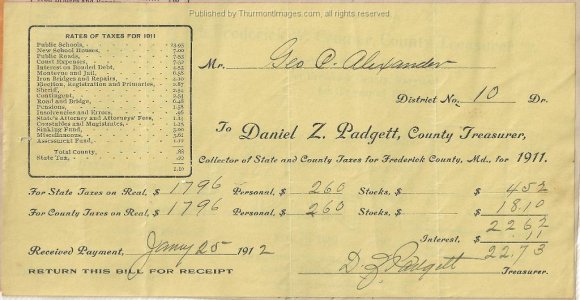 Published by ThurmontImages.com, all rights reserved.
RATES OF TAXES FOR 1911
Public Schools,
New School Houses,
Public Roads,
Court Expenses,
Interest on Bonded Debt,
Montevue and Jail,
Iron Bridges and Repairs,
Election, Registration and Primaries,
Sheriff,
Contingent,
Road and Bridge,
Pensions,
Insolvencies and Errors,
State's Attorney and Attorneys' Fees,
Constables and Magistrates,
Sinking Fund,
Miscellaneous,
Assessment Fund,
Total County,
State Tax,
1.10
Mr. Geo C. Alexander
District No. 10 Dr.
To Daniel Z. Padgett, County Treasurer,
Collector of State and County Taxes for Frederick County, Md., for 1911.
For State Taxes on Real, $ 1796 Personal, $ 260 Stocks, $ $ 452
For County Taxes on Real, $ 1796 Personal, $ 260 Stocks, $ $ 18.10
22.62
Interest, $ .11
Received Payment, Jany 25 1912 22.73
D. Z. Padgett Treasurer.
RETURN THIS BILL FOR RECEIPT